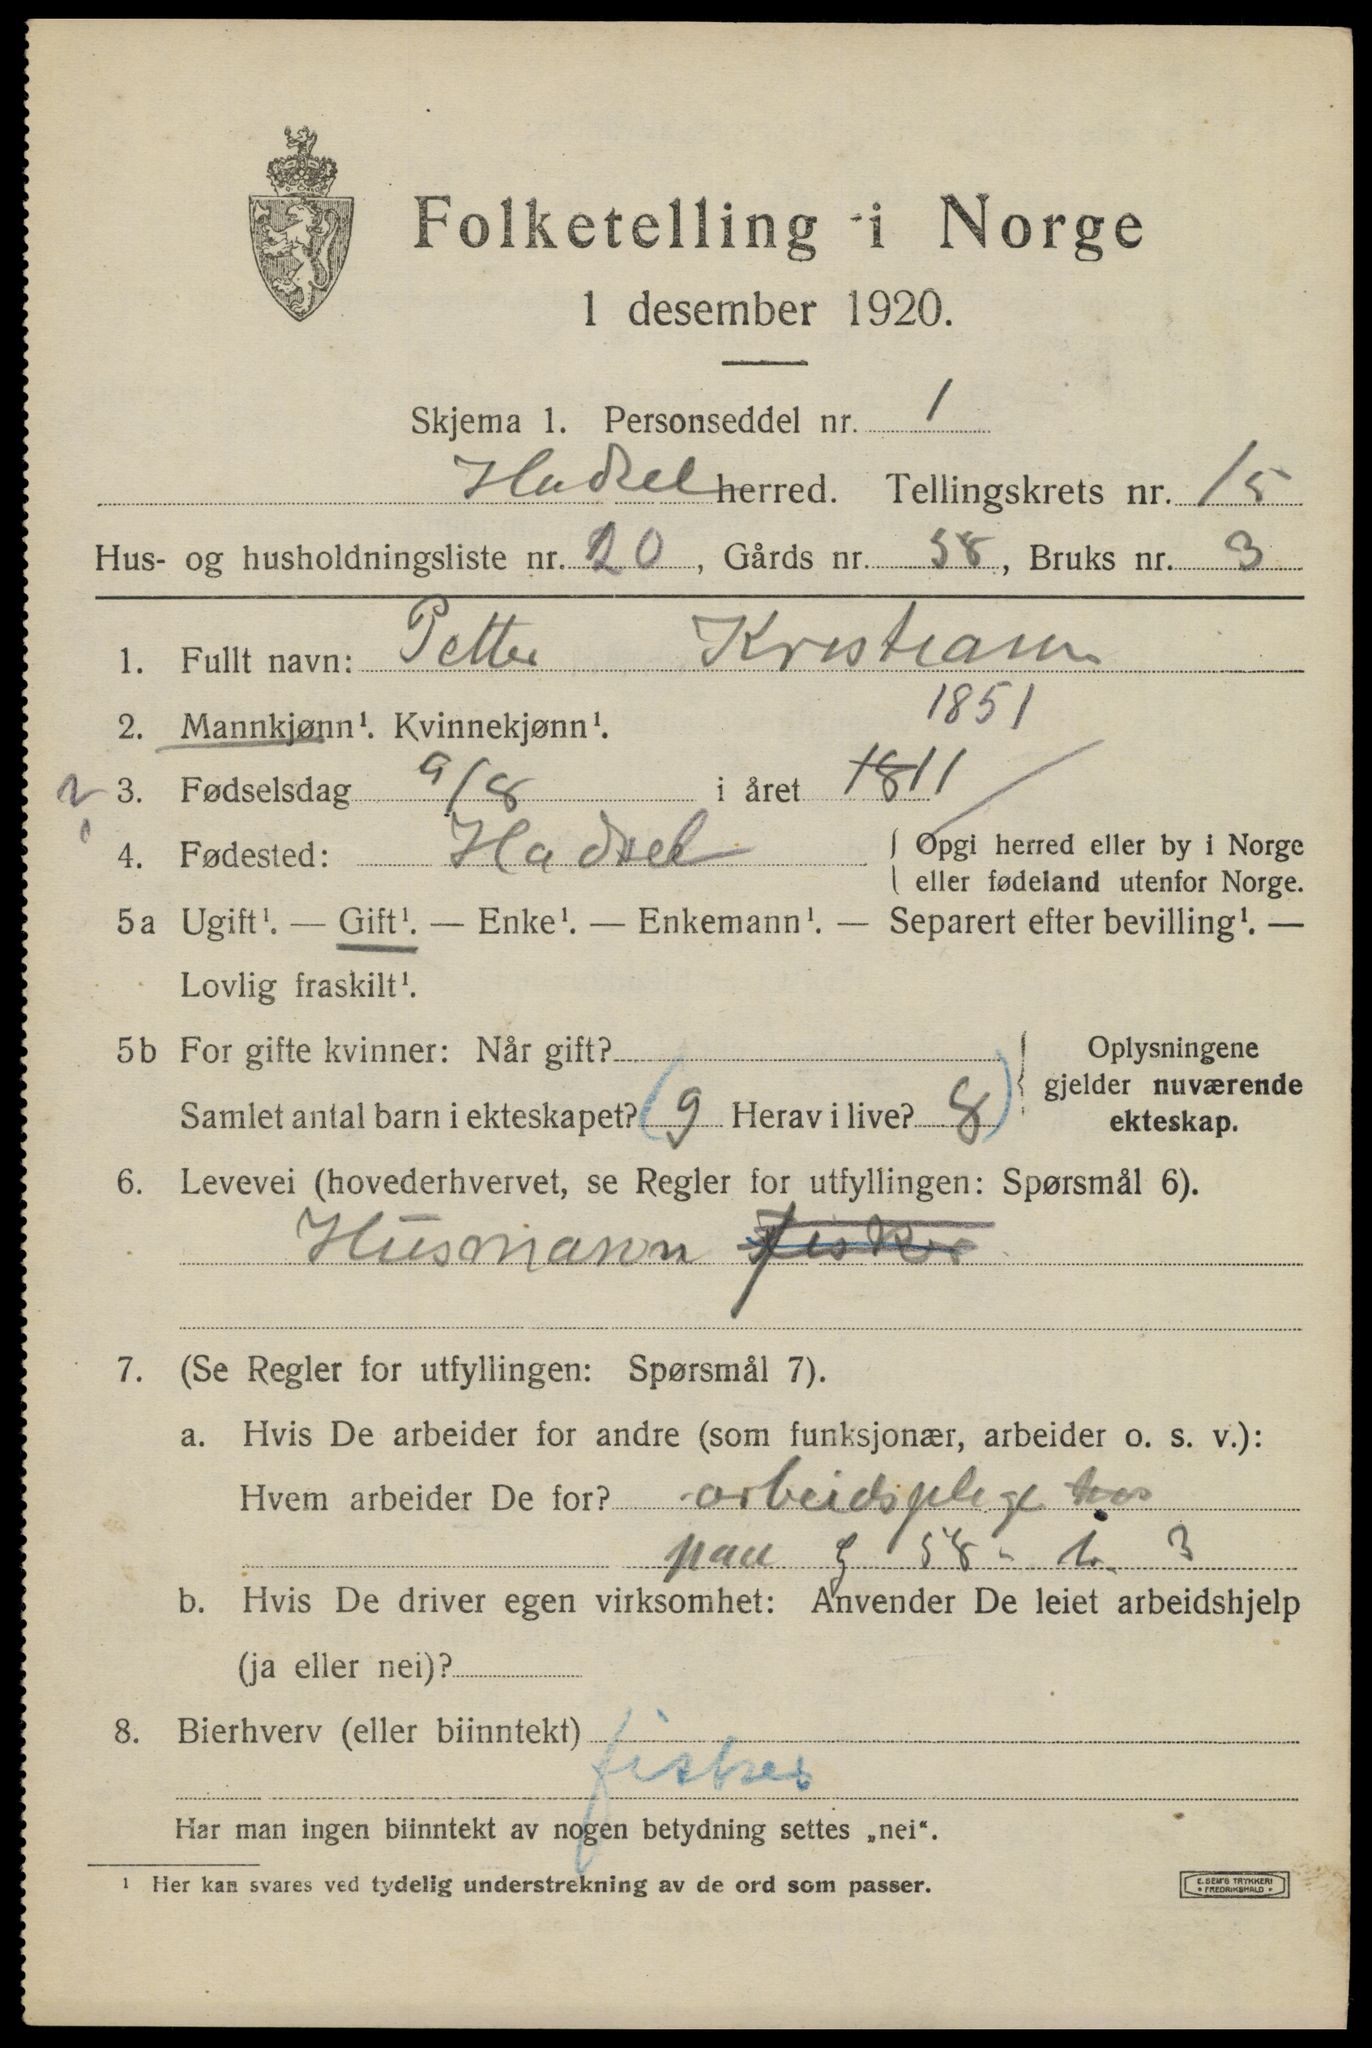 Folketelling i Norge
1 desember 1920.
Skjema 1. Personseddel nr. 1
Hadsel herred. Tellingskrets nr. 15
Hus- og husholdningsliste nr. 20, Gårds nr. 58, Bruks nr. 3
1. Fullt navn: Petter Kristiann
2. Mannkjønn¹. Kvinnekjønn¹. 1851
3. Fødselsdag 9/8 i året 1811
4. Fødested: Hadsel { Opgi herred eller by i Norge
eller fødeland utenfor Norge.
5a Ugift¹. — Gift¹. — Enke¹. — Enkemann¹. — Separert efter bevilling¹. —
Lovlig fraskilt¹.
5b For gifte kvinner: Når gift? Oplysningene
gjelder nuværende
Samlet antal barn i ekteskapet? (9 Herav i live? 8) ekteskap.
6. Levevei (hovederhvervet, se Regler for utfyllingen: Spørsmål 6).
Husmann fisker
7. (Se Regler for utfyllingen: Spørsmål 7).
a. Hvis De arbeider for andre (som funksjonær, arbeider o. s. v.):
Hvem arbeider De for? arbeidsplege hos
paa g 58 - b. 3
b. Hvis De driver egen virksomhet: Anvender De leiet arbeidshjelp
(ja eller nei)?
8. Bierhverv (eller biinntekt)
fisker
Har man ingen biinntekt av nogen betydning settes „nei“.
¹ Her kan svares ved tydelig understrekning av de ord som passer.
E. SEM'S TRYKKERI
• FREDRIKSHALD •